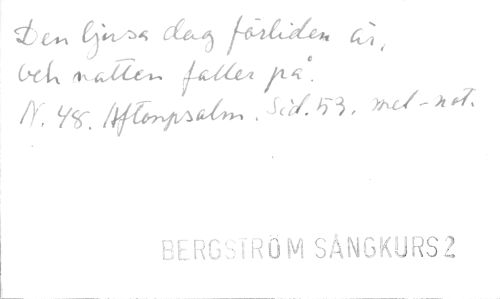 Den ljusa dag förliden är,
och natten faller på.
N. 48. Aftonpsalm. Sid. 53. mel-not.
BERGSTRÖM SÅNGKURS 2